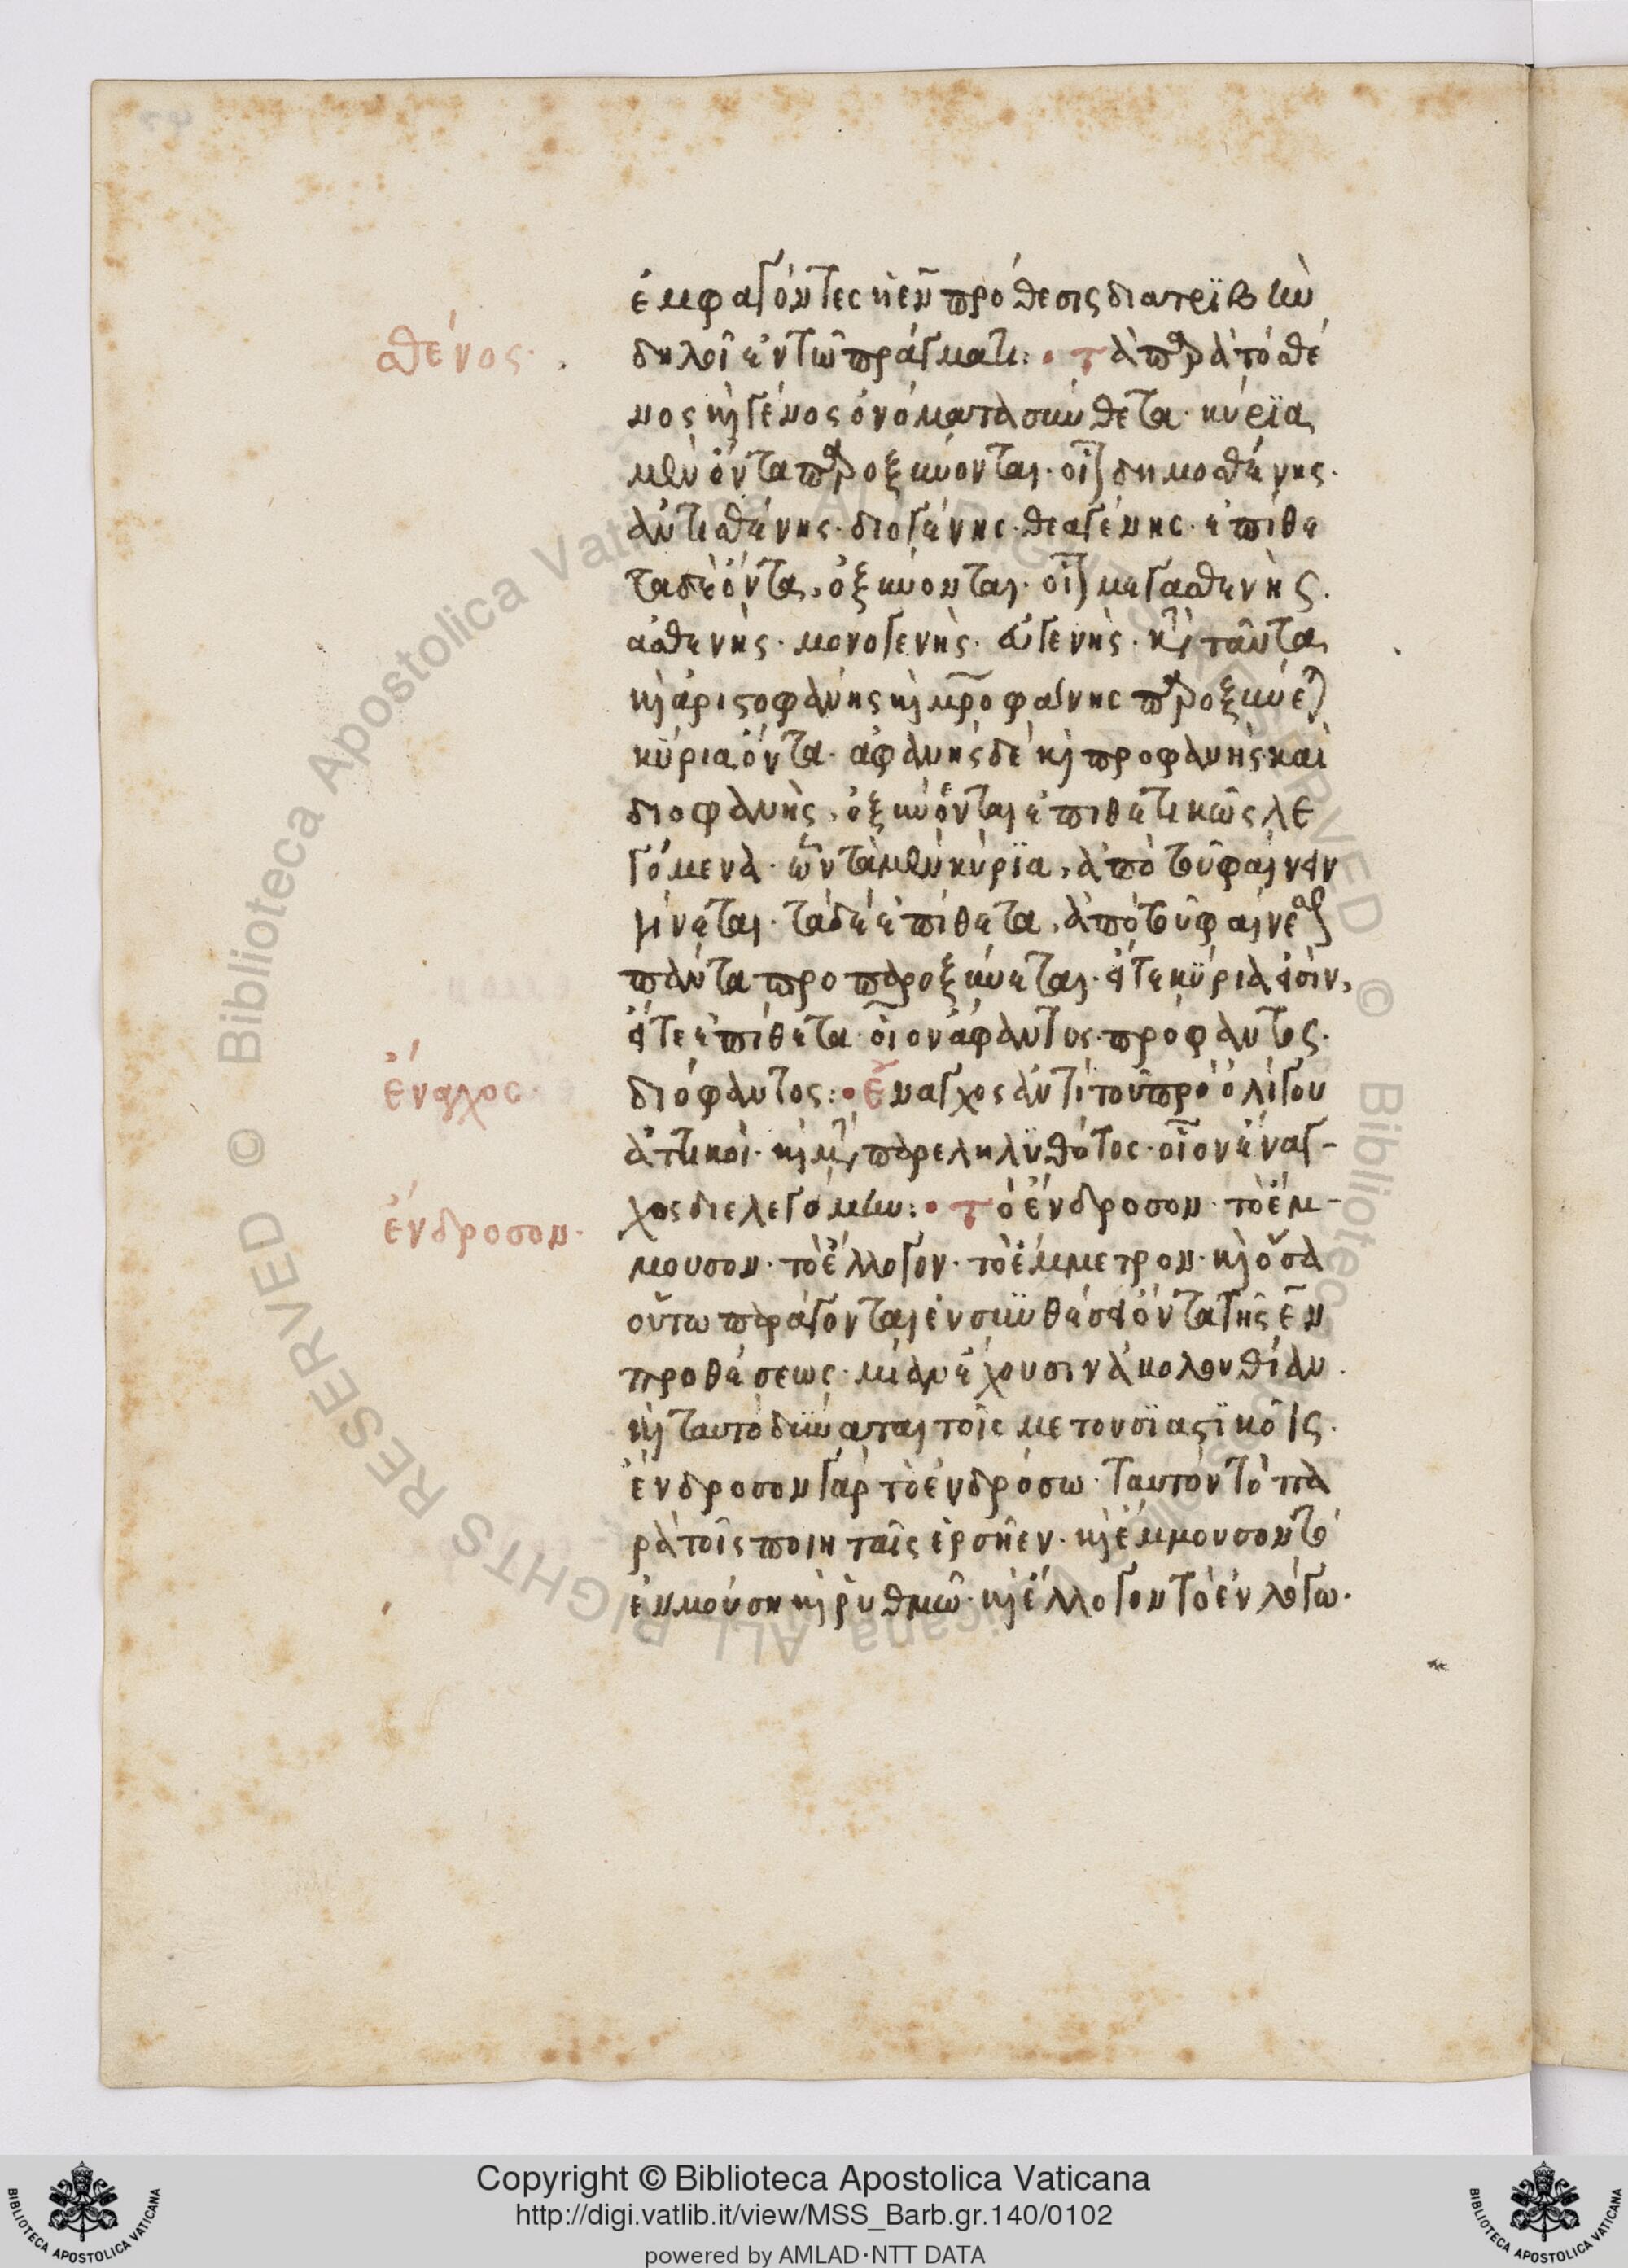 ἐμφαγόντες ἡ ἐν πρόθεσις διατριβὴν
σθένος·
δηλοῖ ἐν τῷ πράγματι: • τὰ παρὰ τὸ σθέ
νος καὶ γένος ὀνόματα σύνθετα· κύρϊα
μὲν ὄντα παροξύνονται· οἷον δημοσθένης·
ἀντισθένης· διογένης· θεαγένης· ἐπίθε
τα δὲ ὄντα, ὀξύνονται· οἷον μεγασθενὴς.
ἀσθενής· μονογενὴς· εὐγενής· καὶ ταῦτα
καὶ ἀριστοφάνης καὶ μητροφάνης παροξύνεται
κύρια ὄντα· ἀφανὴς δὲ καὶ προφανὴς καὶ
διοφανὴς, ὀξύνονται ἐπιθετικῶς λε
γόμενα· ὧν τὰ μὲν κύρϊα, ἀπὸ τοῦ φαίνειν
γίνεται· τὰ δὲ ἐπίθετα, ἀπὸ τοῦ φαίνεσθαι
πάντα προπαροξύνεται· εἴτε κύρια εἰσὶν,
εἴτε ἐπίθετα· οἷον ἄφαντος· πρόφαντος·
ἔναγχος·
διόφαντος: • ἔναγχος ἀντὶ τοῦ πρὸ ὀλίγου
ἀττικοὶ· καὶ μετὰ παρεληλυθότος· οἷον ἔναγ-
ἔνδροσον·
χος διελεγόμην: • τὸ ἔνδροσον· τὸ ἔμ-
μουσον· τὸ ἔλλογον· τὸ ἔμμετρον· καὶ ὅσα
οὕτω παράγονται ἐν συνθέσει ὄντα τῆς ἐν
προθέσεως· μίαν ἔχουσιν ἀκολουθίαν.
καὶ ταυτὸ δύναται τοῖς μετουσϊαστϊκοῖς.
ἔνδροσον γὰρ τὸ ἐν δρόσω· ταυτὸν τὸ πα
ρὰ τοῖς ποιηταῖς ἐρσῆεν· καὶ ἔμμουσον τὸ
ἐν μούσῃ καὶ ῥυθμῶ· καὶ ἔλλογον τὸ ἐν λόγω·
Copyright © Biblioteca Apostolica Vaticana
http://digi.vatlib.it/view/MSS_Barb.gr.140/0102
powered by AMLAD·NTT DATA
BIBLIOTECA APOSTOLICA VATICANA
BIBLIOTECA APOSTOLICA VATICANA